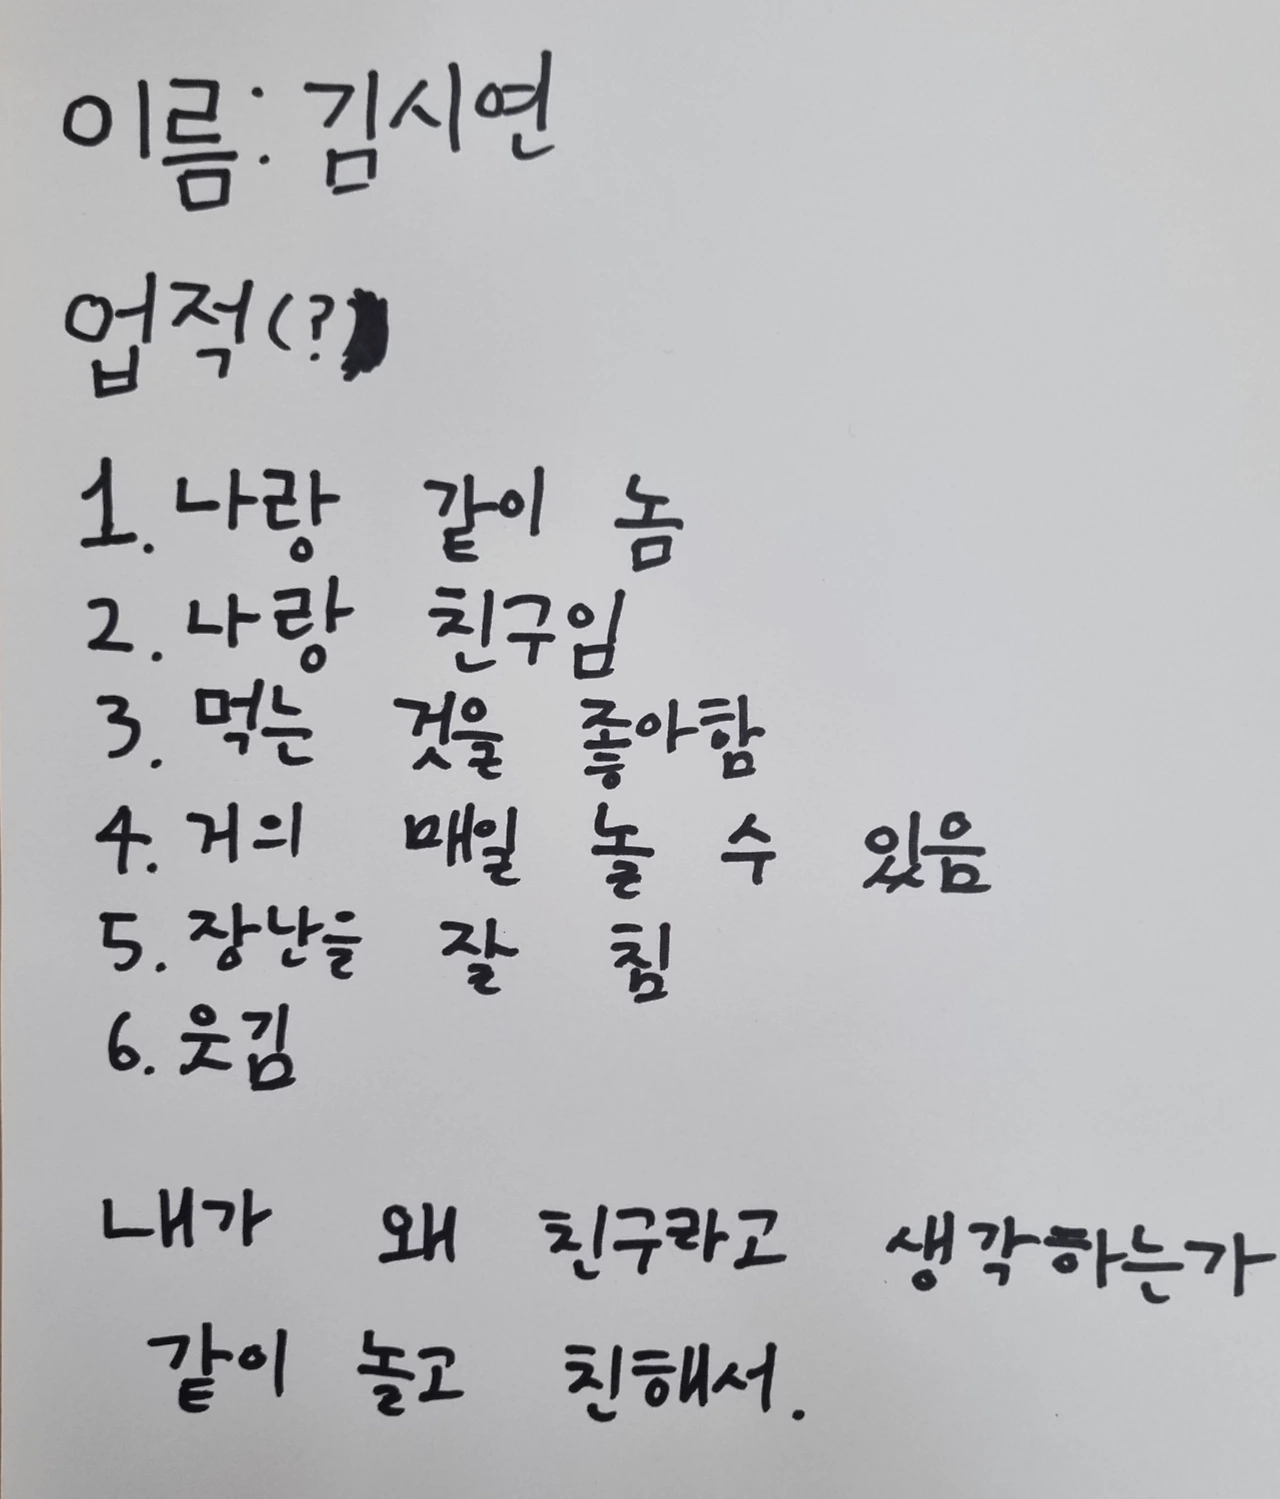 이름: 김시연
업적(?)
1. 나랑 같이 놈
2. 나랑 친구임
3. 먹는 것을 좋아함
4. 거의 매일 놀 수 있음
5. 장난을 잘 침
6. 웃김
내가 왜 친구라고 생각하는가
같이 놀고 친해서.